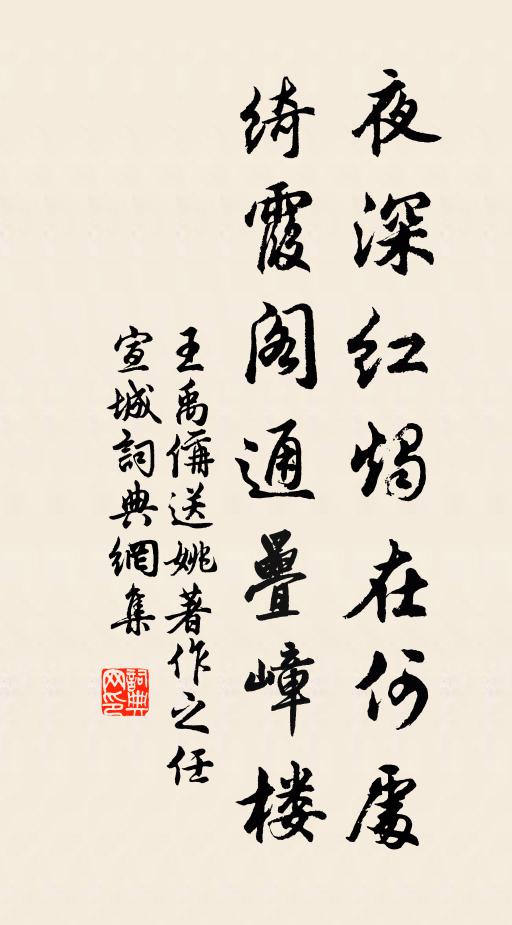 夜深红烛在何處
绮霞阁通疊嶂楼
王禹偁送姚著作之任
宣城詞典網集
詞典网印